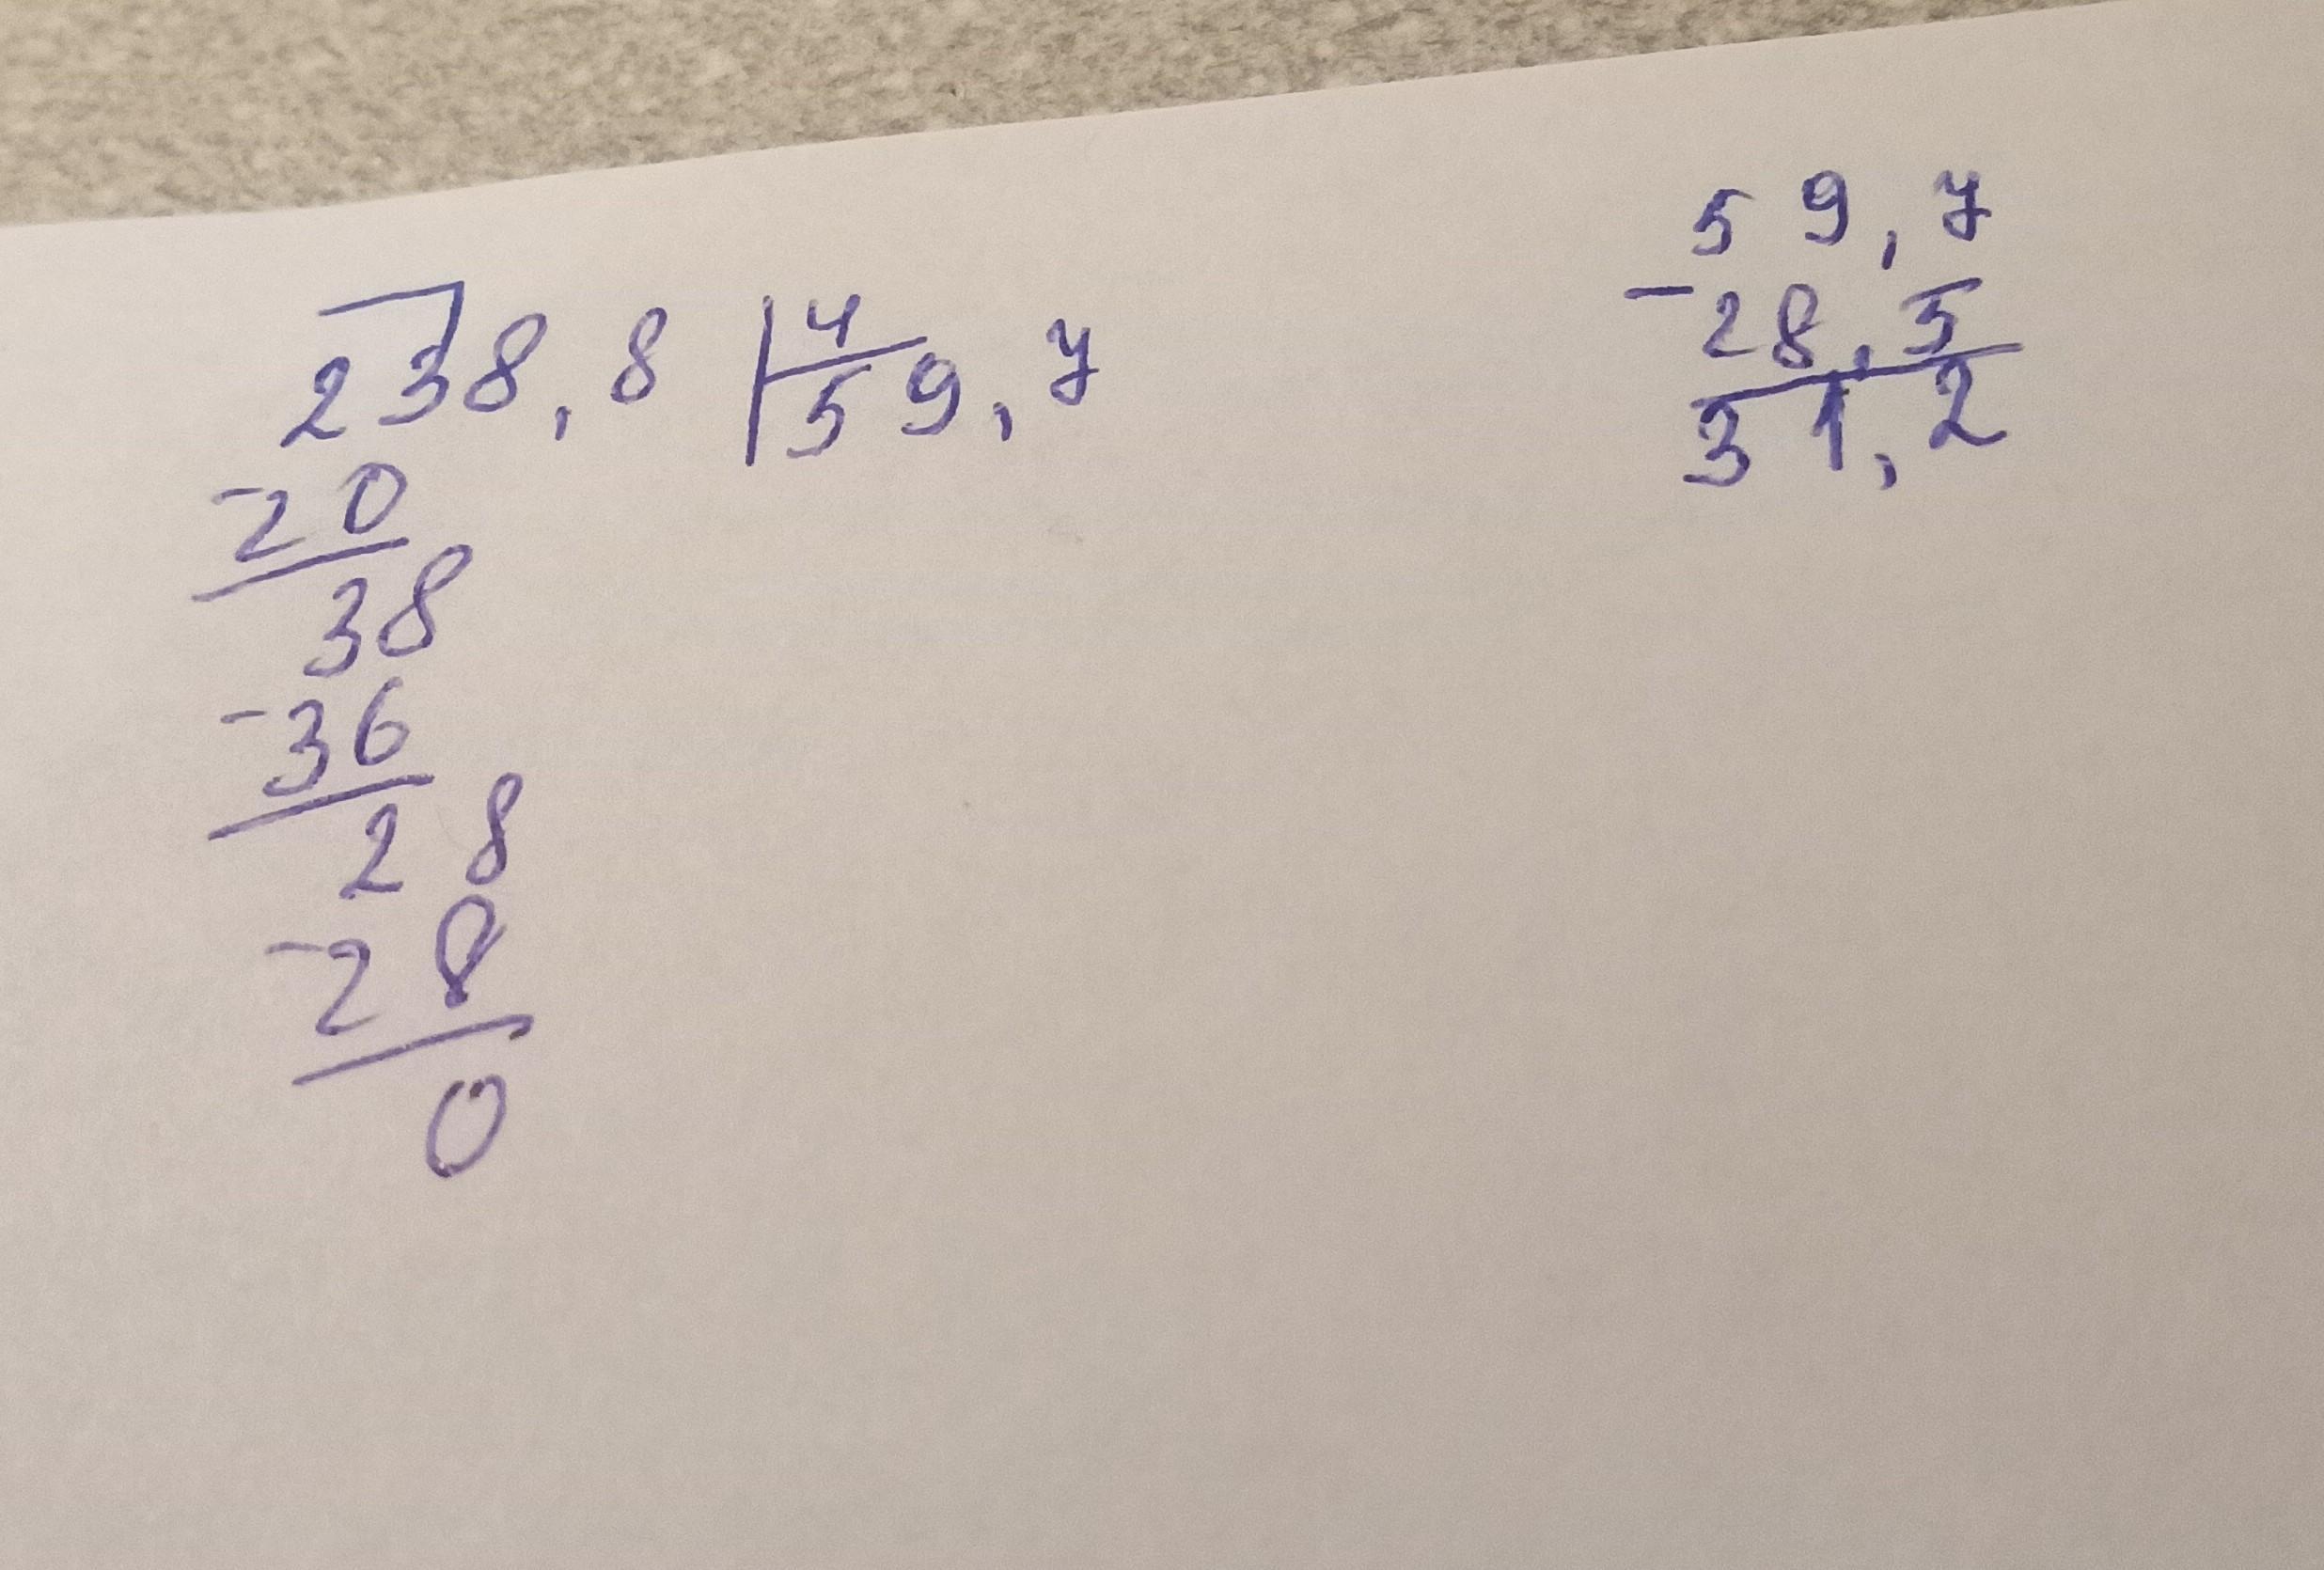 238,8 | 4
59,7
-20
38
-36
28
-28
0
59,7
-28,5
31,2